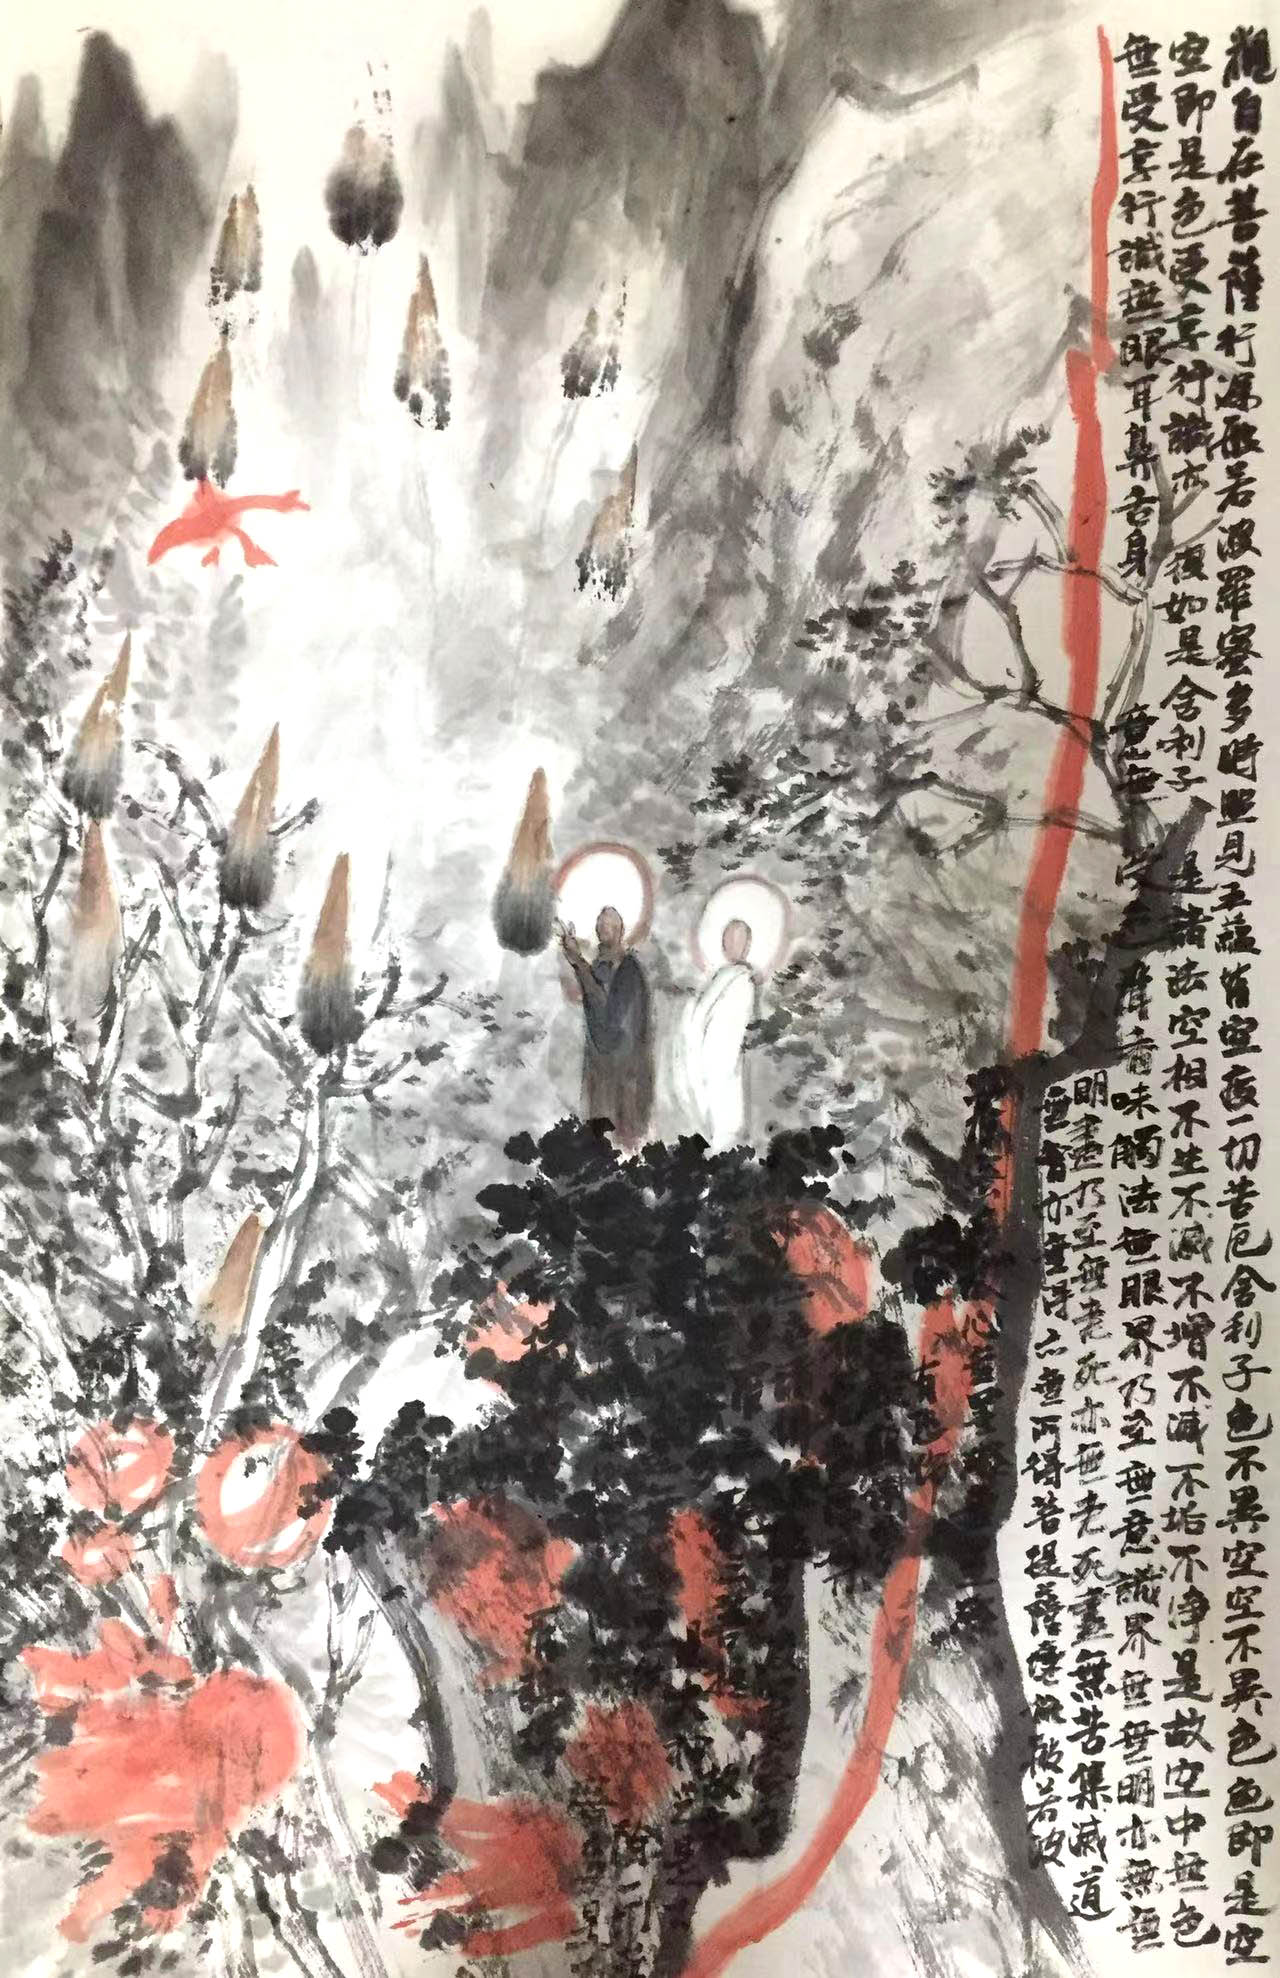 觀自在菩薩行深般若波羅蜜多時照見五蘊皆空度一切苦厄舍利子色不異空空不異色色即是空
空即是色受享行識亦復如是舍利子是諸法空相不生不滅不增不減不垢不淨是故空中無色
無受享行識無眼耳鼻舌身意無色聲香味觸法無眼界乃至無意識界無無明亦無無
明盡乃至無老死亦無老死盡無苦集滅道
無智亦無得以無所得菩提薩埵依般若波
心無罣
有恐怖